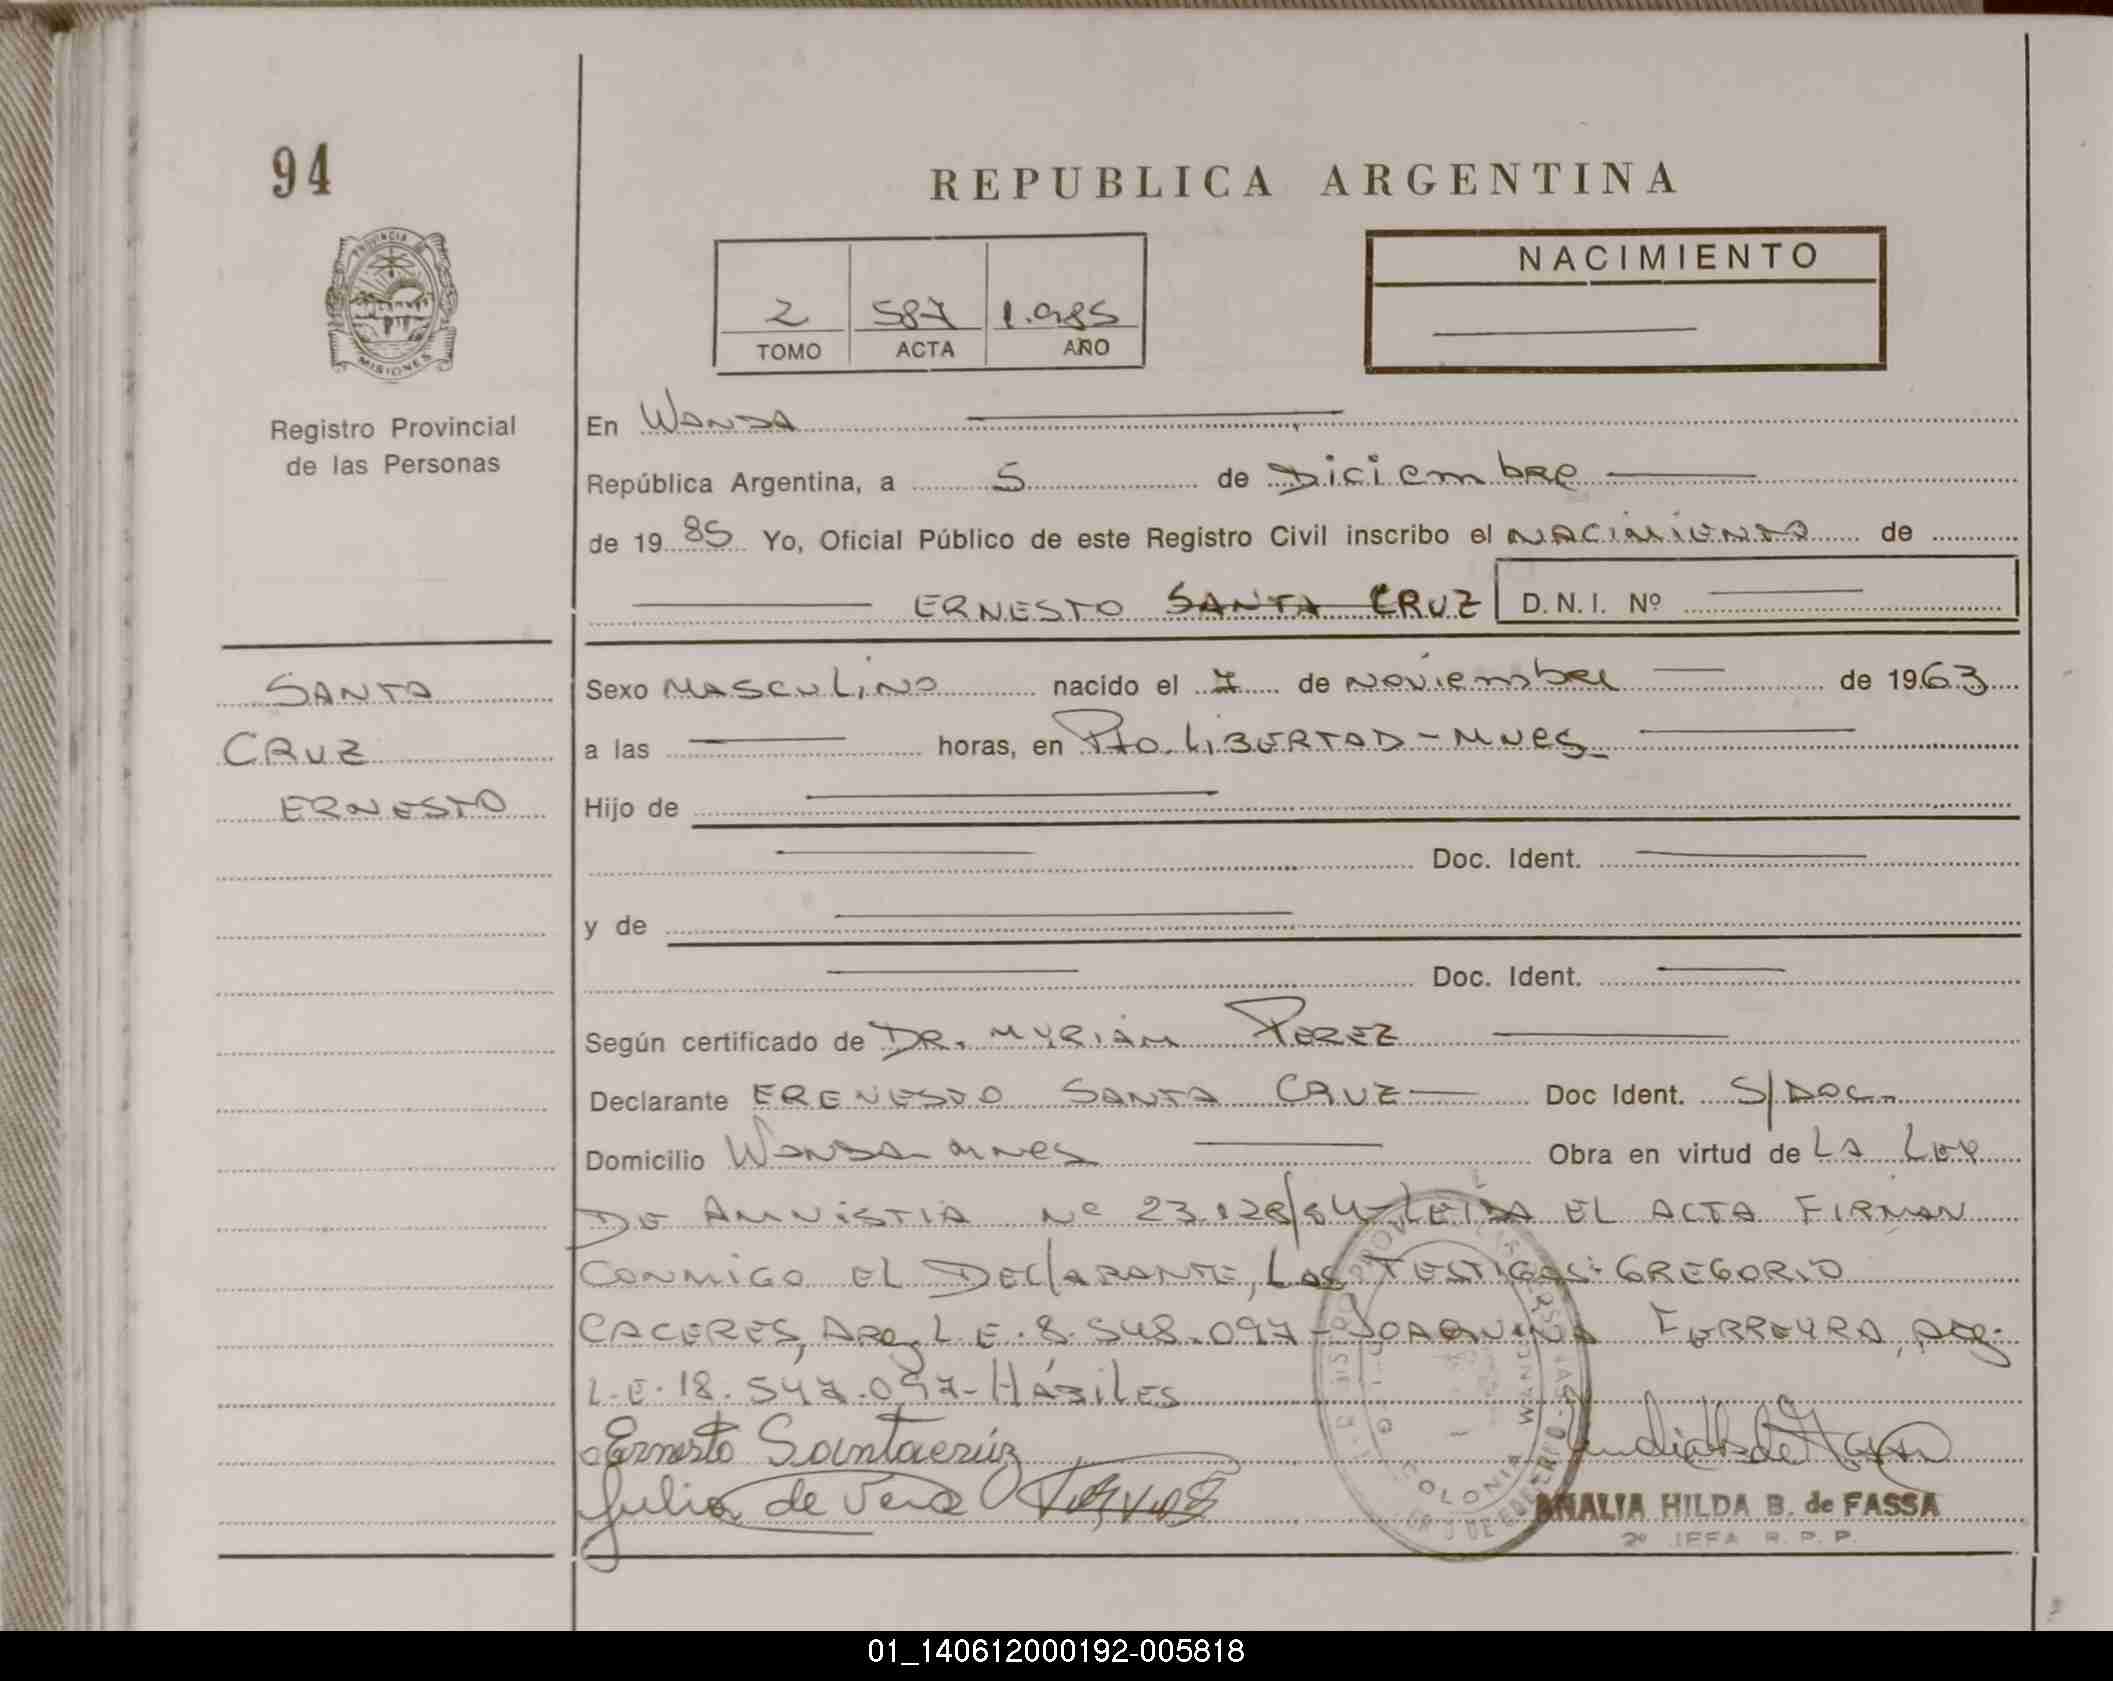 94
REPUBLICA ARGENTINA
PROVINCIA DE
MISIONES
Registro Provincial
de las Personas
2 587 1.985
TOMO ACTA AÑO
NACIMIENTO
En WANDA
República Argentina, a 5 de Diciembre
de 1985 Yo, Oficial Público de este Registro Civil inscribo el NACIMIENTO de
ERNESTO SANTA CRUZ D.N.I. Nº
SANTA
CRUZ
ERNESTO
Sexo MASCULINO nacido el 7 de NOViembre de 1963
a las horas, en Pto. LIBERTAD - Mnes
Hijo de
Doc. Ident.
y de
Doc. Ident.
Según certificado de DR. MYRIAM PEREZ
Declarante ERENESTO SANTA CRUZ Doc Ident. S/DOC.
Domicilio WANDA - Mnes Obra en virtud de LA Ley
DE AMNISTIA Nº 23.128/84 - LEIDA EL ACTA FIRMAN
CONMIGO EL DEClARANTE, Los TESTIGOS: GREGORIO
CACERES, Arg. L.E. 8.548.097 - JOAQUINA FERREYRA, Arg.
L.E. 18.547.097 - HÁBILES
Ernesto Santacrúz
Julia de Vera
COLONIA WANDA
ANALIA HILDA B. de FASSA
2º JEFA R. P. P.
01_140612000192-005818